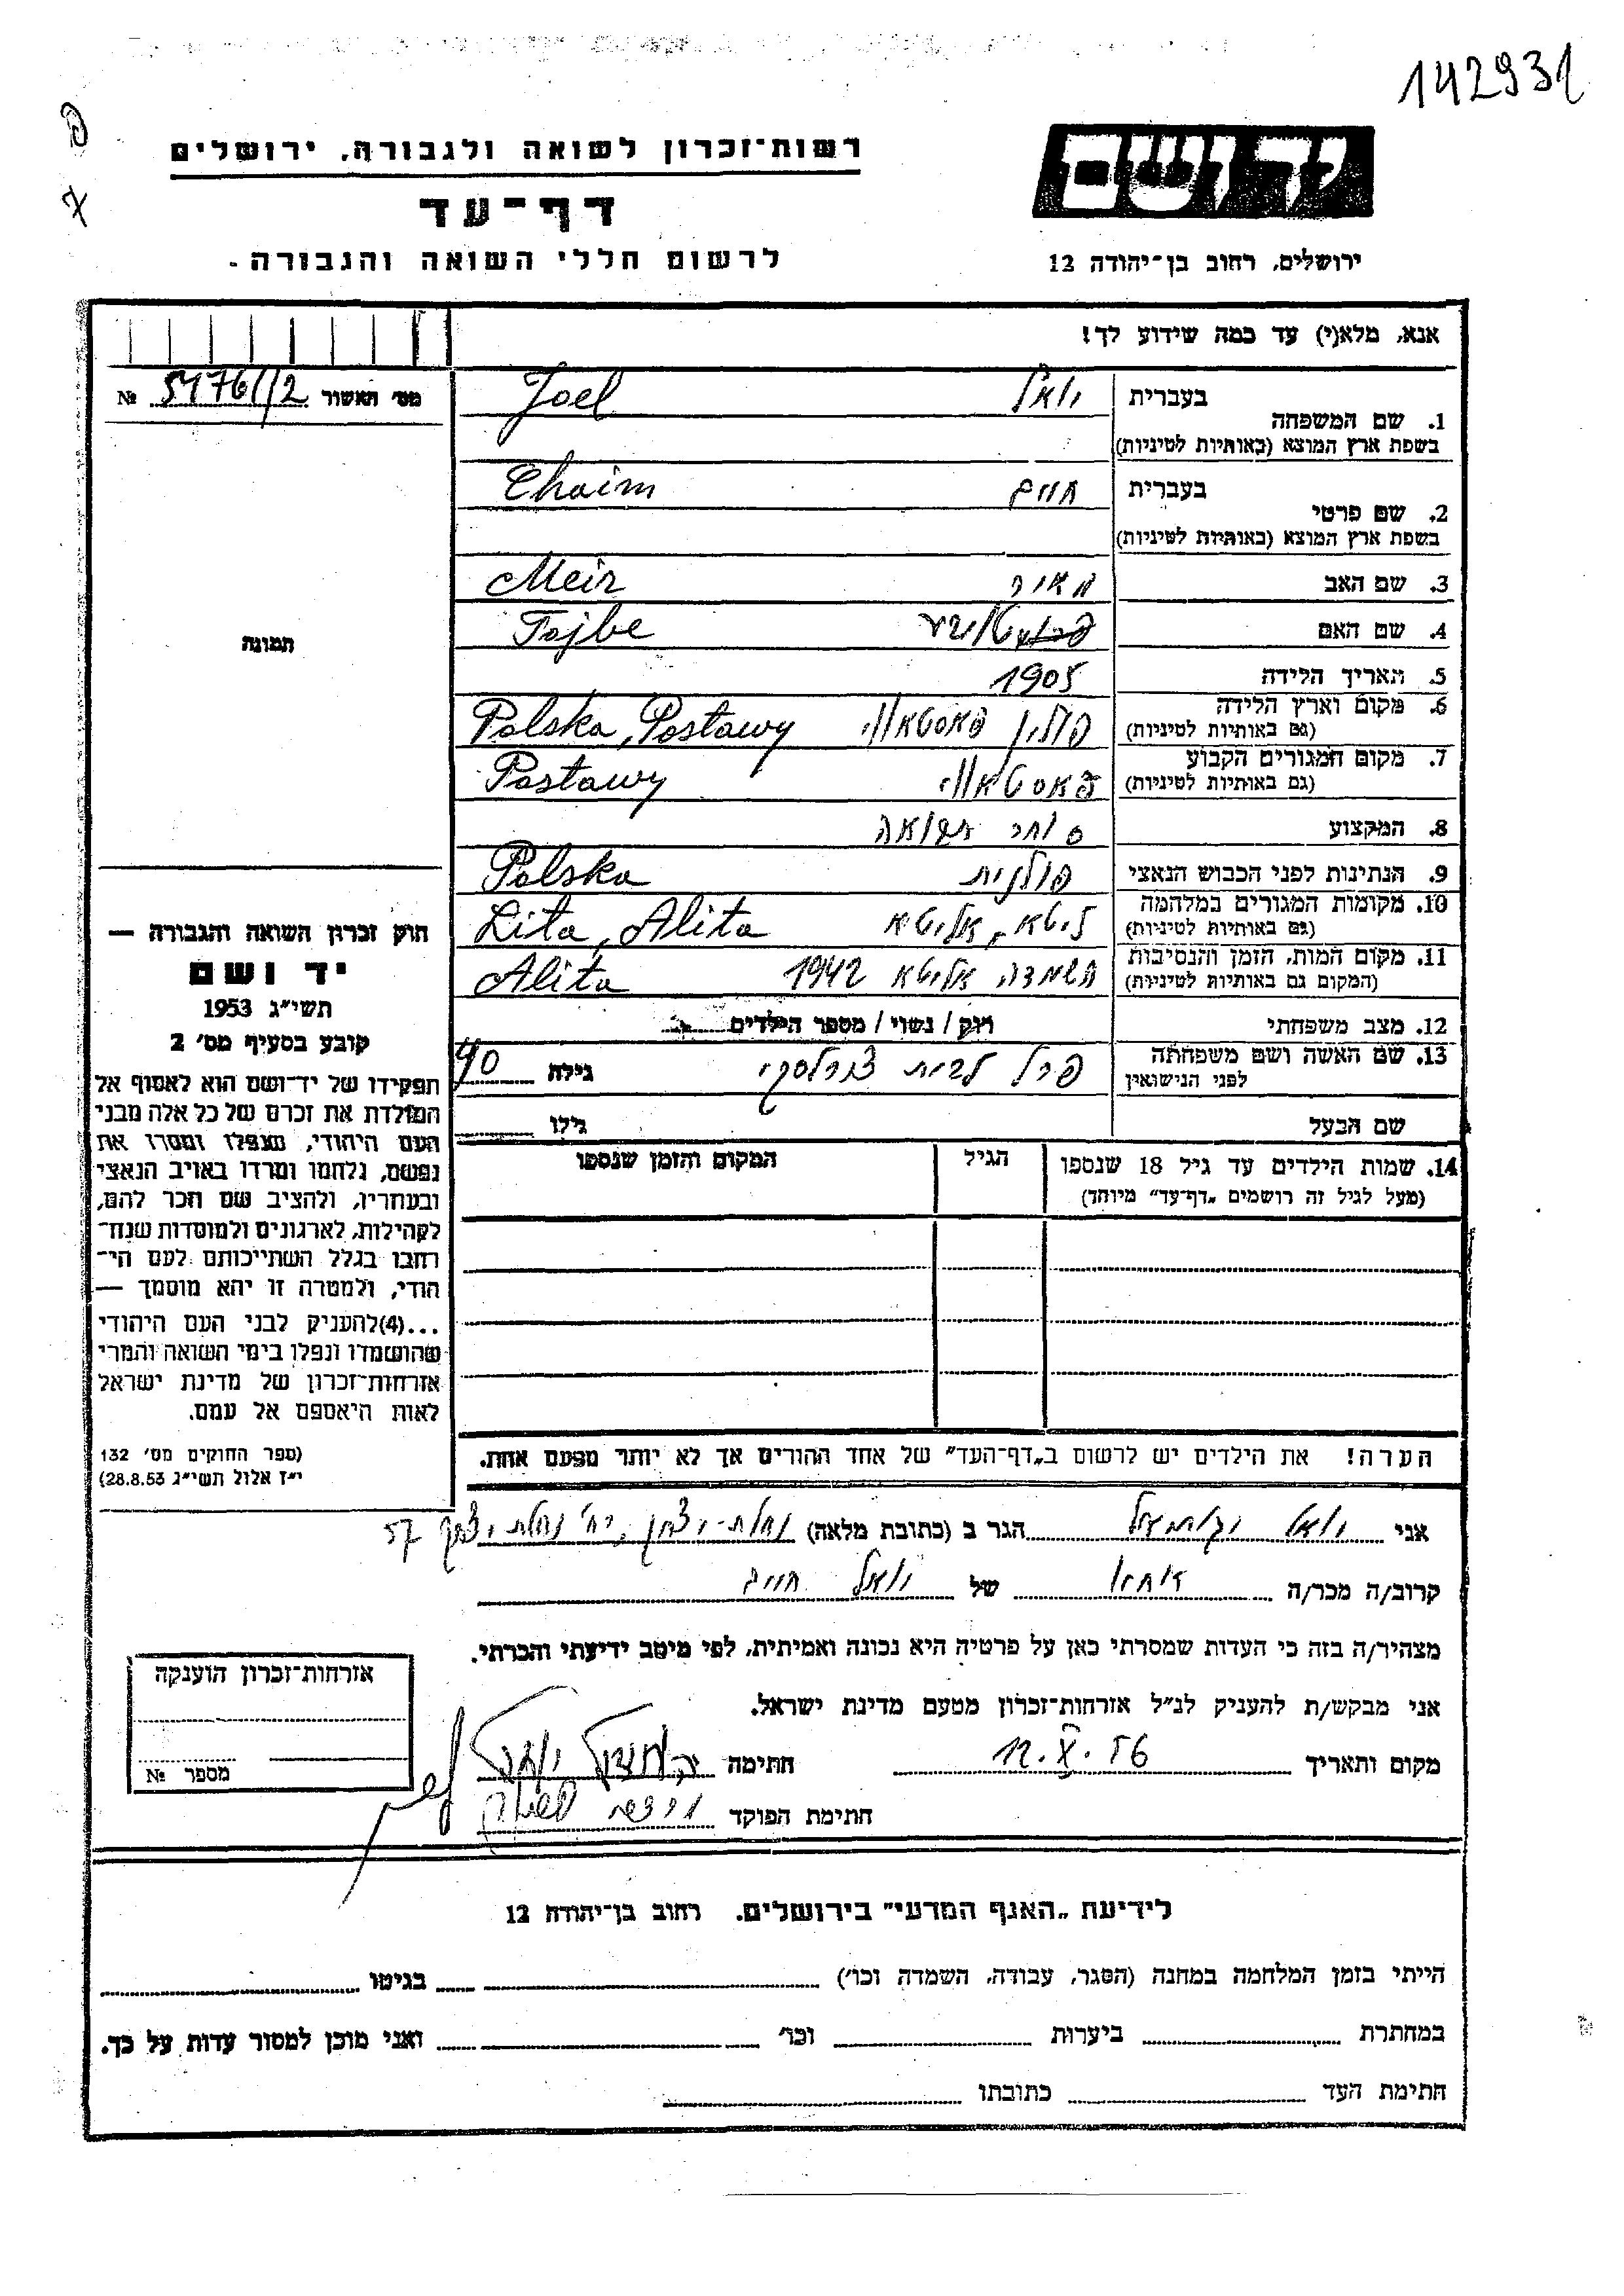 142931
רשות־זכרון לשואה ולגבורה, ירושלים
דף־עד
לרשום חללי השואה והגבורה
ידושם
ירושלים, רחוב בן־יהודה 12
אנא, מלא(י) עד כמה שידוע לך!
מס' תאשור № 5476/12
1. שם המשפחה
בעברית יואל Joel
בשפת ארץ המוצא (באותיות לטיניות)
2. שם פרטי
בעברית חיים Chaim
בשפת ארץ המוצא (באותיות לטיניות)
3. שם האב מאיר Meir
4. שם האם Tojbe
5. תאריך הלידה 1905
6. מקום וארץ הלידה פולין פאסטאווי Polska, Postawy
(גם באותיות לטיניות)
7. מקום המגורים הקבוע פאסטאווי Postawy
(גם באותיות לטיניות)
8. המקצוע סוחר תבואה
9. הנתינות לפני הכבוש הנאצי פולנית Polska
10. מקומות המגורים במלחמה ליטא, אליטא Lita, Alita
(גם באותיות לטיניות)
11. מקום המות, הזמן והנסיבות השמדה אליטא 1942 Alita
(המקום גם באותיות לטיניות)
12. מצב משפחתי רווק / נשוי / מספר הילדים
13. שם האשה ושם משפחתה פרל לבית גילה 40
לפני הנישואין
שם הבעל גילו
14. שמות הילדים עד גיל 18 שנספו הגיל המקום והזמן שנספו
(מעל לגיל זה רושמים „דף־עד" מיוחד)
הערה! את הילדים יש לרשום ב„דף־העד" של אחד ההורים אך לא יותר מפעם אחת.
תמונה
חוק זכרון השואה והגבורה —
יד ושם
תשי"ג 1953
קובע בסעיף מס' 2
תפקידו של יד־ושם הוא לאסוף אל
המולדת את זכרם של כל אלה מבני
העם היהודי, שנפלו ומסרו את
נפשם, נלחמו ומרדו באויב הנאצי
ובעוזריו, ולהציב שם וזכר להם,
לקהילות, לארגונים ולמוסדות שנח־
רבו בגלל השתייכותם לעם הי־
הודי, ולמטרה זו יהא מוסמך —
...(4)להעניק לבני העם היהודי
שהושמדו ונפלו בימי השואה והמרי
אזרחות־זכרון של מדינת ישראל
לאות היאספם אל עמם.
(ספר החוקים מס' 132
י"ז אלול תשי"ג 28.8.53)
אני יואל הגר ב (כתובת מלאה) נחלת־יצחק, רח' נחלת יצחק 57
קרוב/ה מכר/ה של יואל חיים
מצהיר/ה בזה כי העדות שמסרתי כאן על פרטיה היא נכונה ואמיתית, לפי מיטב ידיעתי והכרתי.
אני מבקש/ת להעניק לנ"ל אזרחות־זכרון מטעם מדינת ישראל.
מקום ותאריך 12.X.56 חתימה
חתימת הפוקד
אזרחות־זכרון הוענקה
מספר №
לידיעת „האגף המדעי" בירושלים. רחוב בן־יהודה 12
הייתי בזמן המלחמה במחנה (הסגר, עבודה, השמדה וכו') בגיטו
במחתרת ביערות וכו' ואני מוכן למסור עדות על כך.
חתימת העד כתובתו